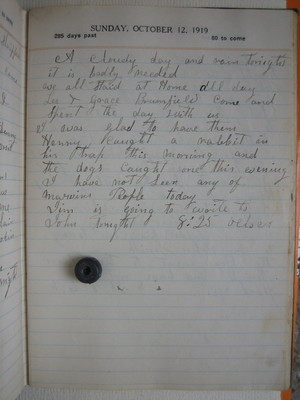 SUNDAY, OCTOBER 12, 1919
285 days past 80 to come
A Cloudy day and rain tonight
it is badly needed
we all staid at Home all day
& Grace Brumfield Come and
Spent the day with us
I was glad to have them
Henry Caught a rabbit in
his trap this morning and
the dogs Caught one this evening
I have not seen any of
People today
Jim is going to write to
John tonight 8:25